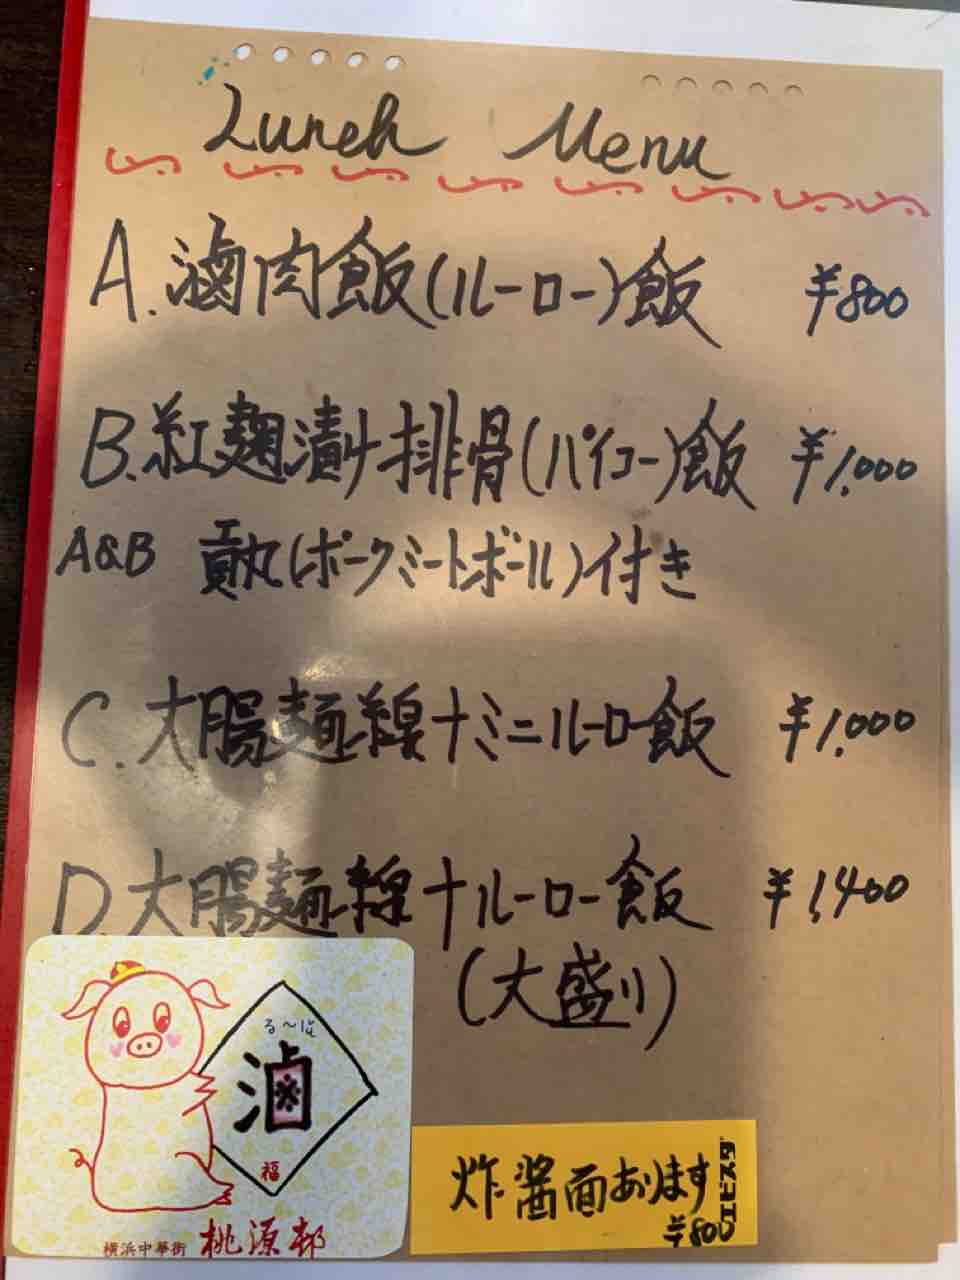 Lunch Menu
A.滷肉飯(ルーロー)飯 ¥800
B.紅麹漬け排骨(パイコー)飯 ¥1,000
A&B 貢丸(ポークミートボール)付き
C.大腸麺線+ミニルーロー飯 ¥1,000
D.大腸麺線+ルーロー飯 ¥1,400
(大盛り)
る〜にく
滷
福
横浜中華街 桃源邨
炸醤面あります
¥800